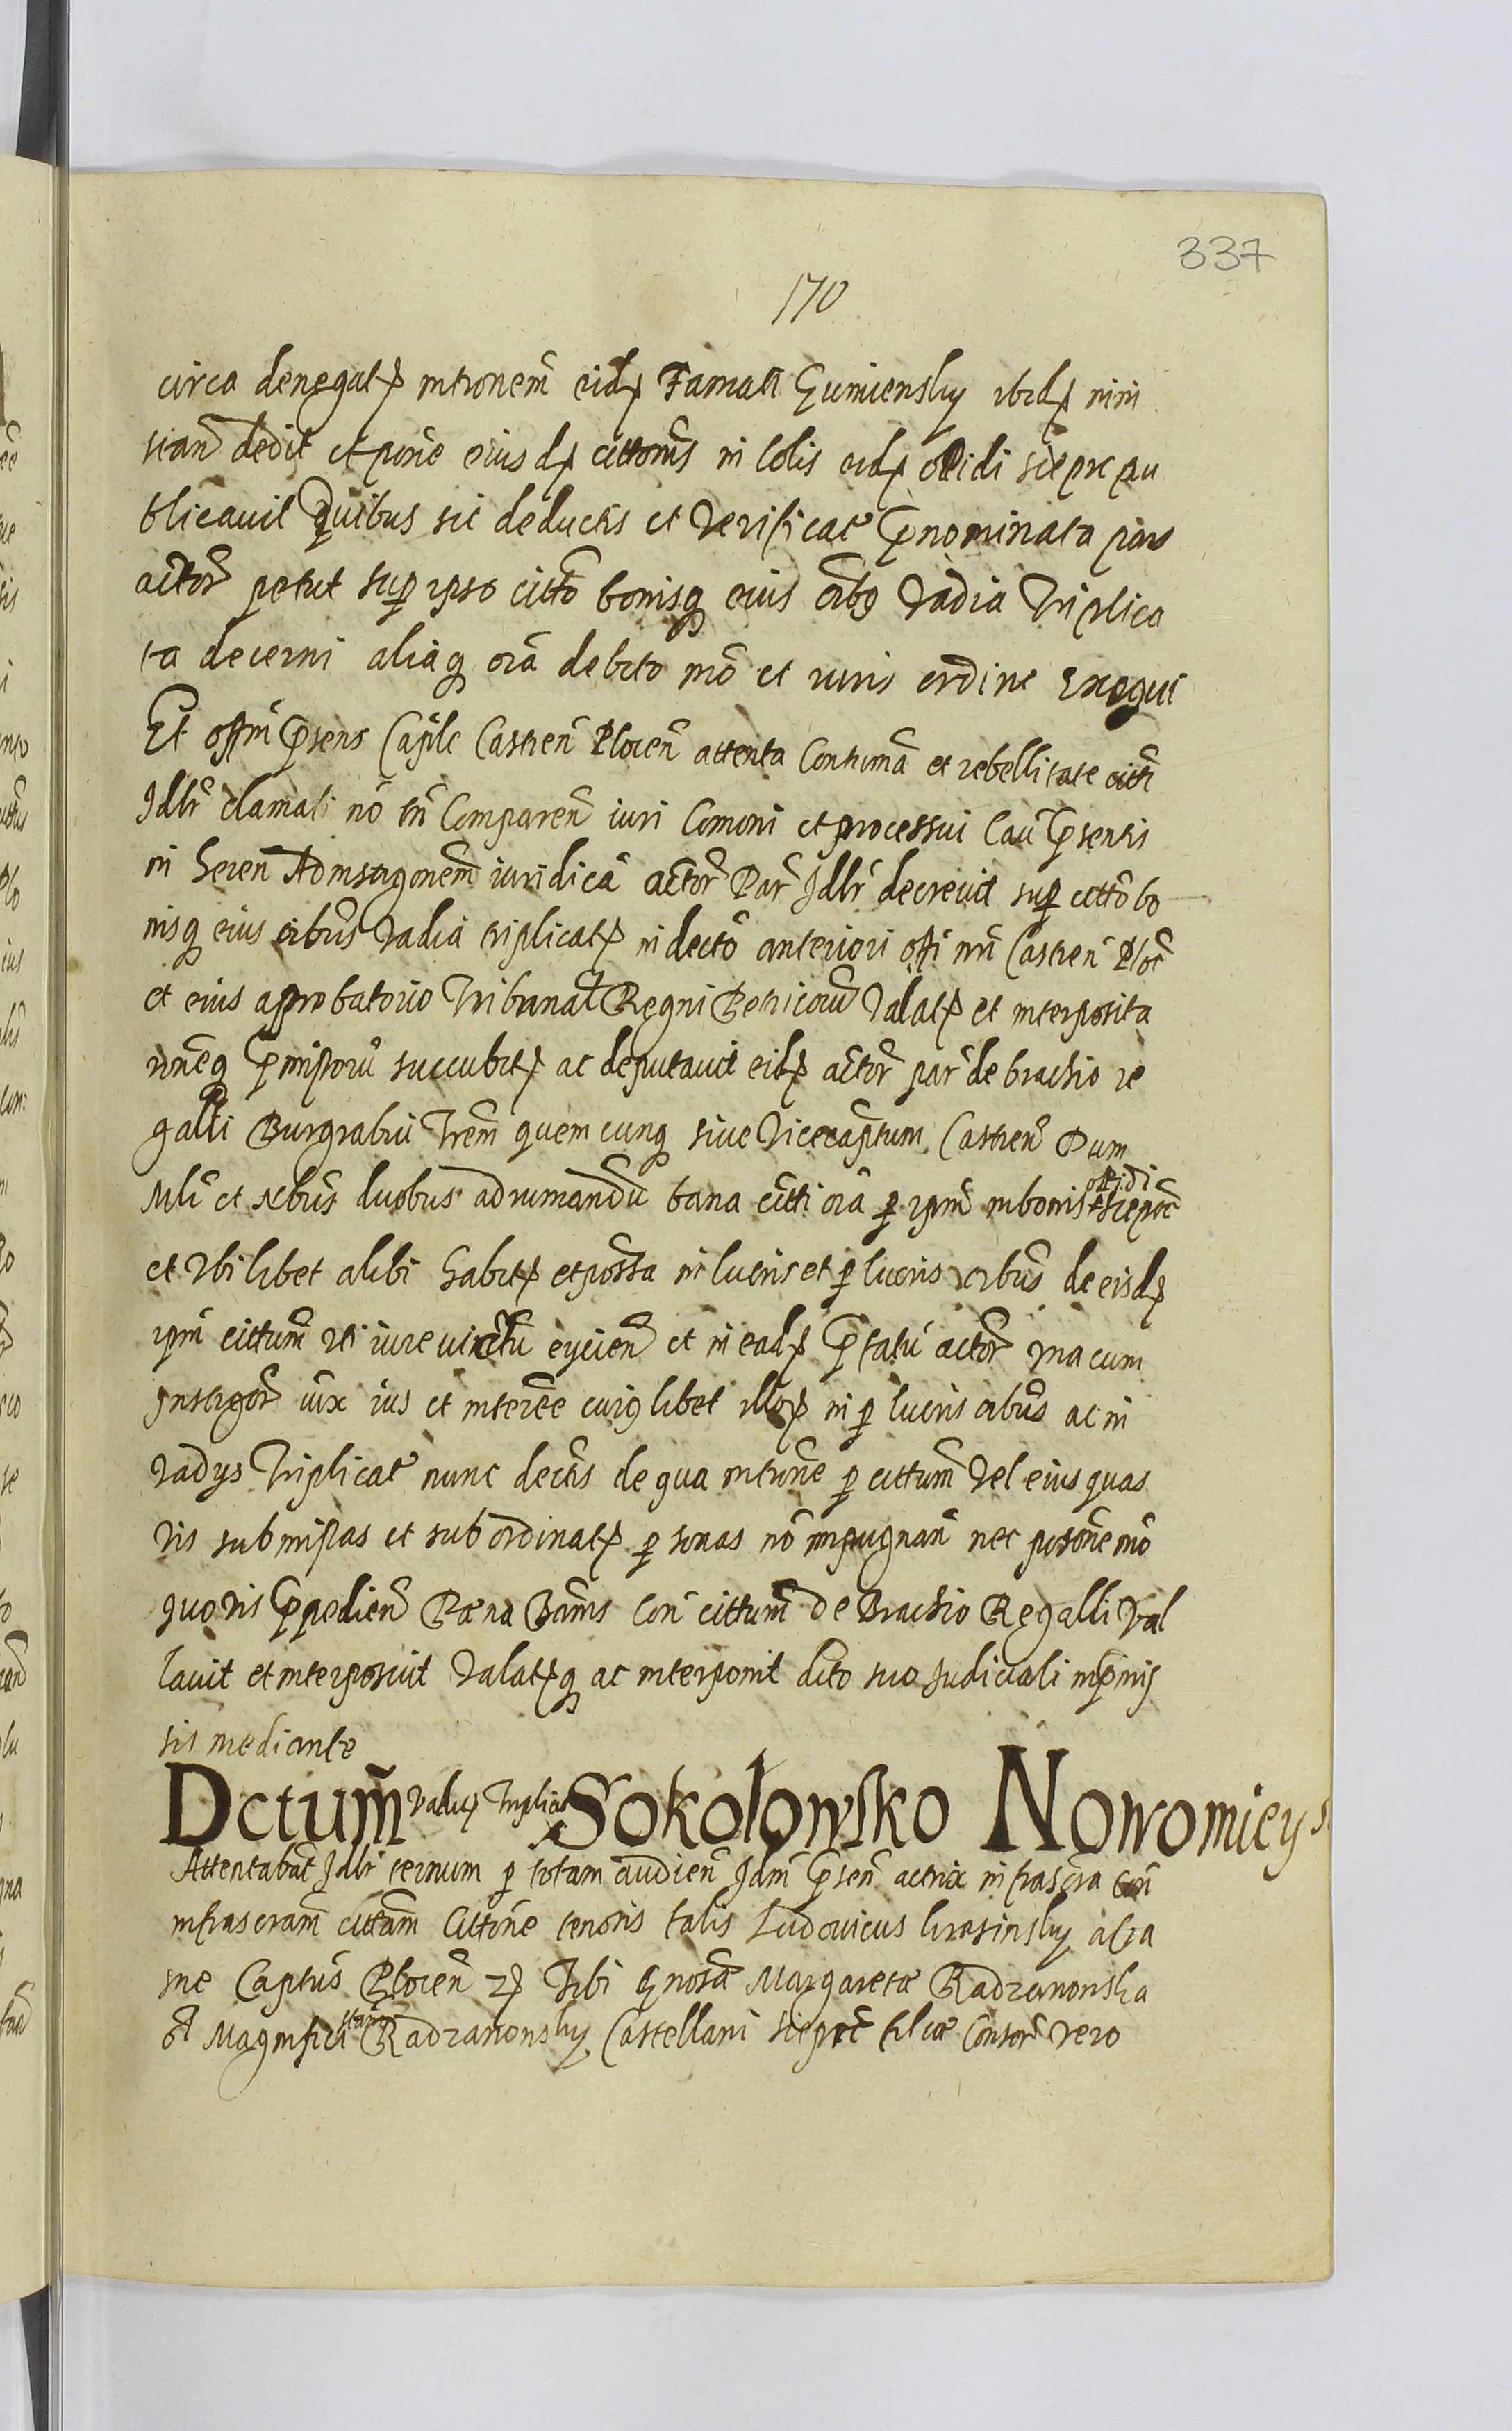 337
170
circa denegatp intronem̃ eidp Famati Gumiensky ibidp mini
sian̄ dedit et pone eiusdp cittonis in locis eidp oppidi Sieprc pu
blicavit Quibus sic deductis et verificat p̄nominata pars
actor̃ petut sup ipso citto bonisq eius oibq vadia triplica
ta decerni aliaq oia debito mō et iuris ordine exequi
Et offm p̄sens Capłe Castren̄ Plocen̄ attenta Contuma et rebellitate citti
Idłr clamati nō tn̄ Comparen̄ iuri Comoni et processui Cau p̄sentis
in heren̄ Ad instigonem̃ iuridica actor̃ Par Idłr decrevit sup citto bo
nisq eius oibus vadia triplicatp in decto anteriori offi nri Castren̄ Ploc̄
et eius aprobatorio Tribunal Regni Petricoui valatp et interposita
roneq p̄missoru succubitp ac deputavit eidp actor̃ par de brachio re
galli Burgrabiu trem̄ quemcunq siue Vicecaptum Castren̄ Dum
Mli et nbus duobus ad rumandu bana citti oia p ipm in bonis oppidi Sieprc̄
et ubilibet alibi habitp et possa in lucris et p lucris oibus de eisdp
ipm cittum uti iure victu eycien̄ et in eadp p̄fatu actor̃ una cum
Instigor̃ iux ius et interee cuiqlibet illorp in p lucris oibus ac in
vadys Triplicat nunc dectis de qua introne p cittum vel eius quas
vis submissas et subordinatp p sonas nō impugnan̄ nec possone mō
quovis p̄pedien̄ Pœna Banis Con cittum de Brachio Regalli val
lavit et interposuit valatpq ac interponit dcto suo Judiciali in p̄mis
sis mediante
Dctum vadiip Triplicat Sokołowsko Nowomieys
Attentabat Idłr ternum p totam audien̄ Idm p̄sen̄ actrix infrascra Con̄
infrascram cittam Cittone tenoris talis Ludovicus Krasinsky alta
sne Captus Plocen̄ zp Tibi Gnosæ Margaretæ Radzanonska
A Magnifici Stani Radzanonsky Castellani Sieprc̄ filiæ Consor̃ vero